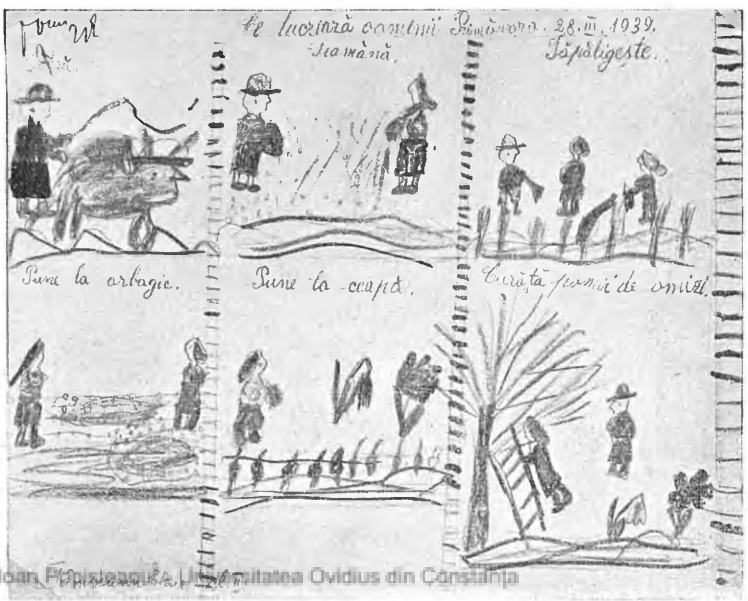 Ce lucrează oamenii Primăvara. 28.III.1939.
Ară.
Seamănă.
Săpăligește.
Pune la arbagic.
Pune la ceapă.
Curăță pomii de omizi.
Ioan Popișteanu", Universitatea Ovidius din Constanța